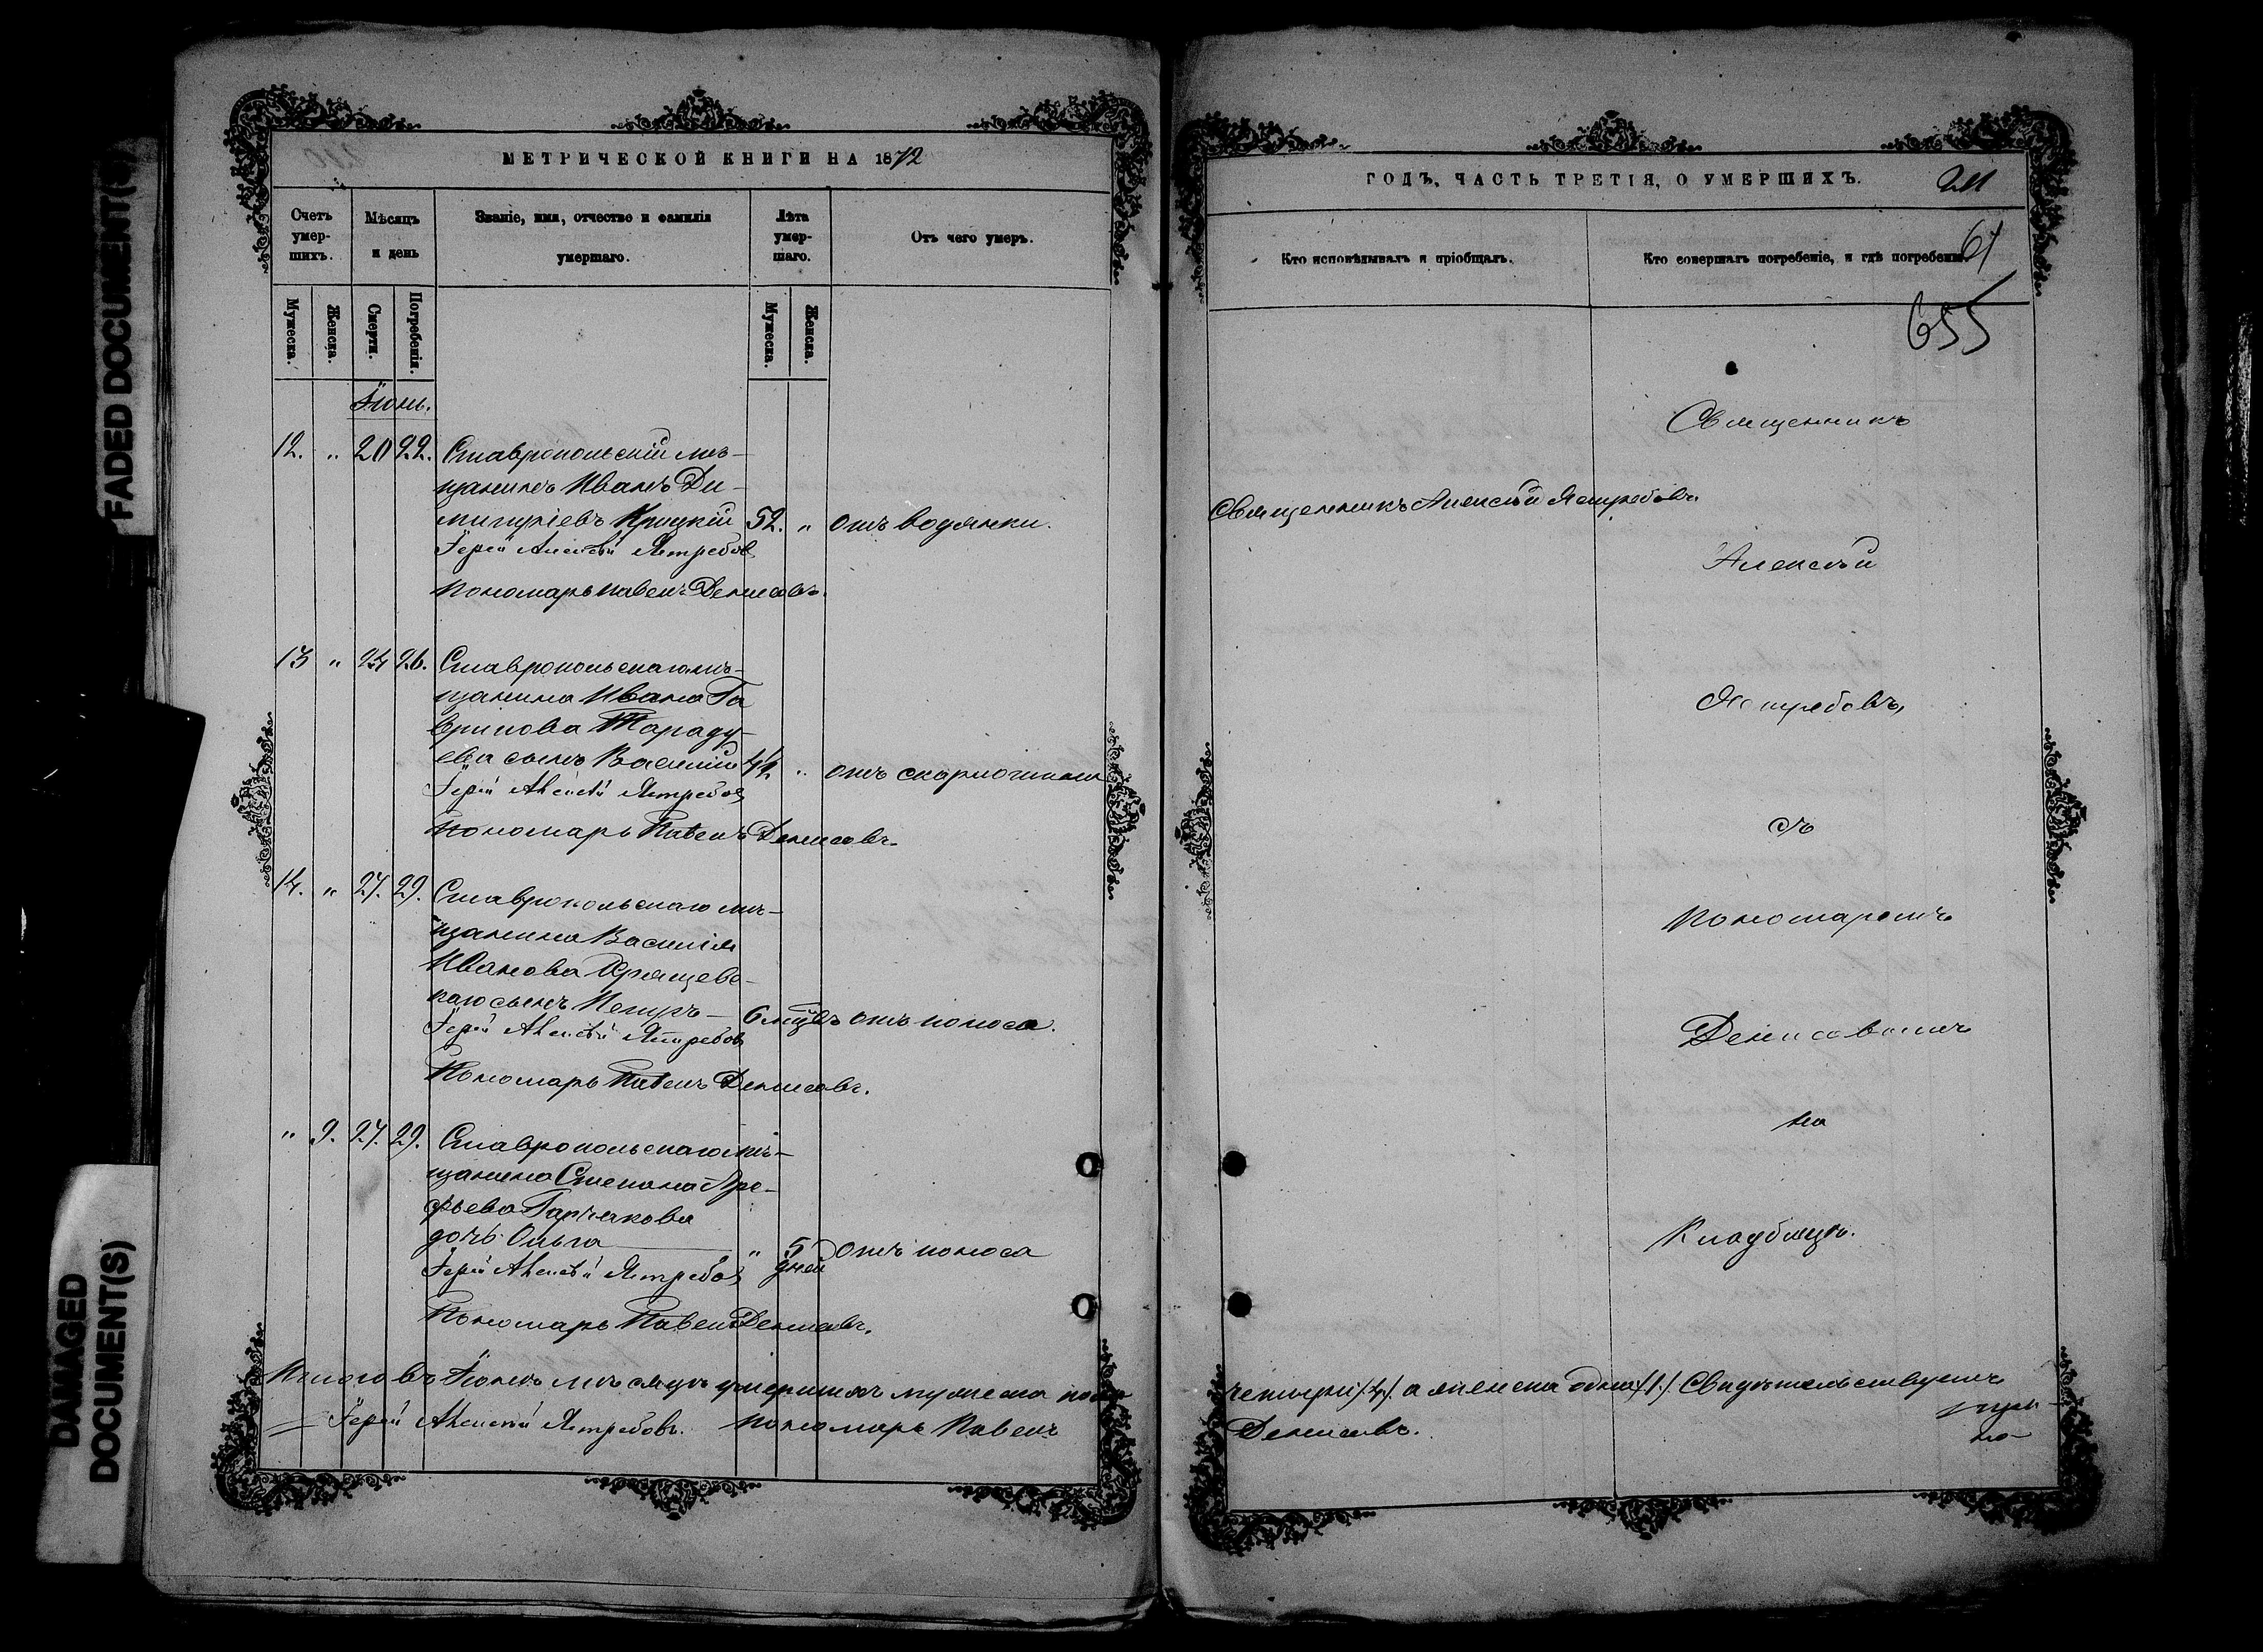 FADED DOCUMENT(S)
DAMAGED
DOCUMENT(S)
МЕТРИЧЕСКОЙ КНИГИ НА 1872
Счетъ умер-шихъ.
Мѣсяцъ и день
Званіе, имя, отчество и фамилія умершаго.
Лѣта умер-шаго.
Отъ чего умеръ.
Мужеска.
Женска.
Смерти.
Погребенія.
Мужеска.
Женска.
Іюнь.
12. " 20 22. Ставропольскій мѣ-
щанинъ Иванъ Ди-
митріевъ Крицкій 52. " отъ водянки.
Іерей Алексѣй Ястребов
Пономарь Павелъ Денисовъ.
13 " 24 26. Ставропольскаго мѣ-
щанина Ивана Га
врилова Тараду-
ева сынъ Василій " отъ скарлатины
Іерей Алексѣй Ястребов
Пономарь Павелъ Денисовъ.
14. " 27. 29. Ставропольскаго мѣ-
щанина Василія
Иванова
каго сынъ Петръ 6 мцвъ отъ поноса.
Іерей Алексѣй Ястребов
Пономарь Павелъ Денисовъ.
" 9. 27. 29. Ставропольскаго мѣ-
щанина Степана Аре-
фьева Горчакова
дочь Ольга " 5 дней отъ поноса
Іерей Алексѣй Ястребов
Пономарь Павелъ Денисовъ.
Итого въ Іюнѣ мѣсяцѣ умершихъ мужеска пола
Іерей Алексѣй Ястребовъ. Пономарь Павелъ
ГОДЪ, ЧАСТЬ ТРЕТІЯ, О УМЕРШИХЪ. 211
Кто исповѣдывалъ и пріобщалъ.
Кто совершалъ погребеніе, и гдѣ погребены.
61
655
Священникъ
Священникъ Алексѣй Ястребовъ
Алексѣй
Ястребовъ,
съ
Пономаремъ
Денисовымъ
на
Кладбищѣ.
четыре /4/. а женска одна /1./. Свидѣтельствуемъ
Денисовъ.